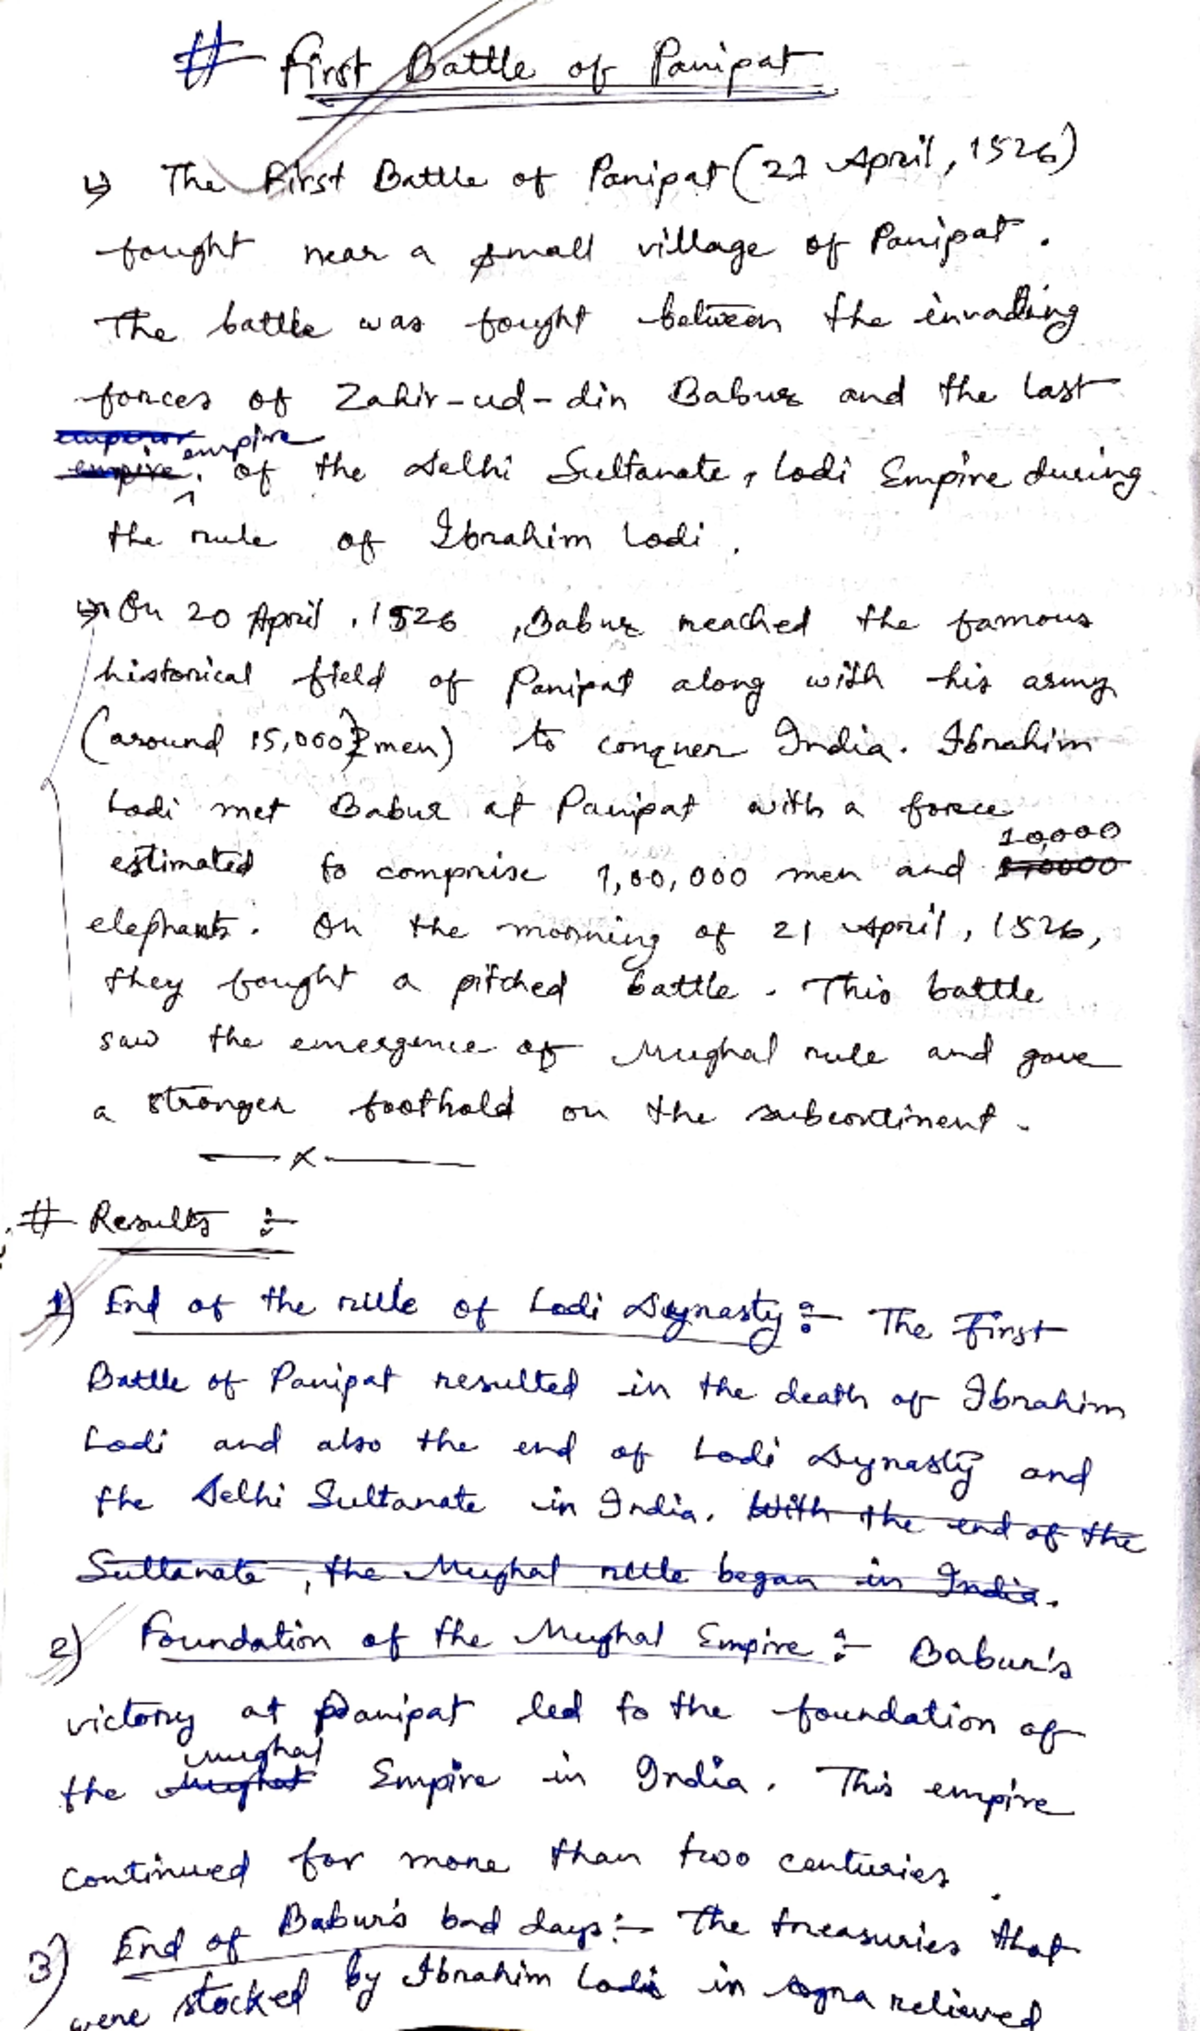 # First Battle of Panipat
↳ The First Battle of Panipat (21 April, 1526)
fought near a small village of Panipat.
The battle was fought between the invading
forces of Zahir-ud-din Babur and the last
emperor empire
empire of the Delhi Sultanate, Lodi Empire during
the rule of Ibrahim Lodi.
↳ On 20 April, 1526, Babur reached the famous
historical field of Panipat along with his army
(around 15,000 men) to conquer India. Ibrahim
Lodi met Babur at Panipat with a force
10,000
estimated to comprise 1,00,000 men and
elephants. On the morning of 21 April, 1526,
they fought a pitched battle. This battle
saw the emergence of Mughal rule and gave
a stronger foothold on the subcontinent.
—x—
# Results :-
1) End of the rule of Lodi Dynasty :- The First
Battle of Panipat resulted in the death of Ibrahim
Lodi and also the end of Lodi Dynasty and
the Delhi Sultanate in India. With the end of the
Sultanate, the Mughal rule began in India.
2) Foundation of the Mughal Empire :- Babur's
victory at Panipat led to the foundation of
mughal
the Mughal Empire in India. This empire
continued for more than two centuries.
3) End of Babur's bad days :- The treasuries that
were stocked by Ibrahim Lodi in Agra relieved